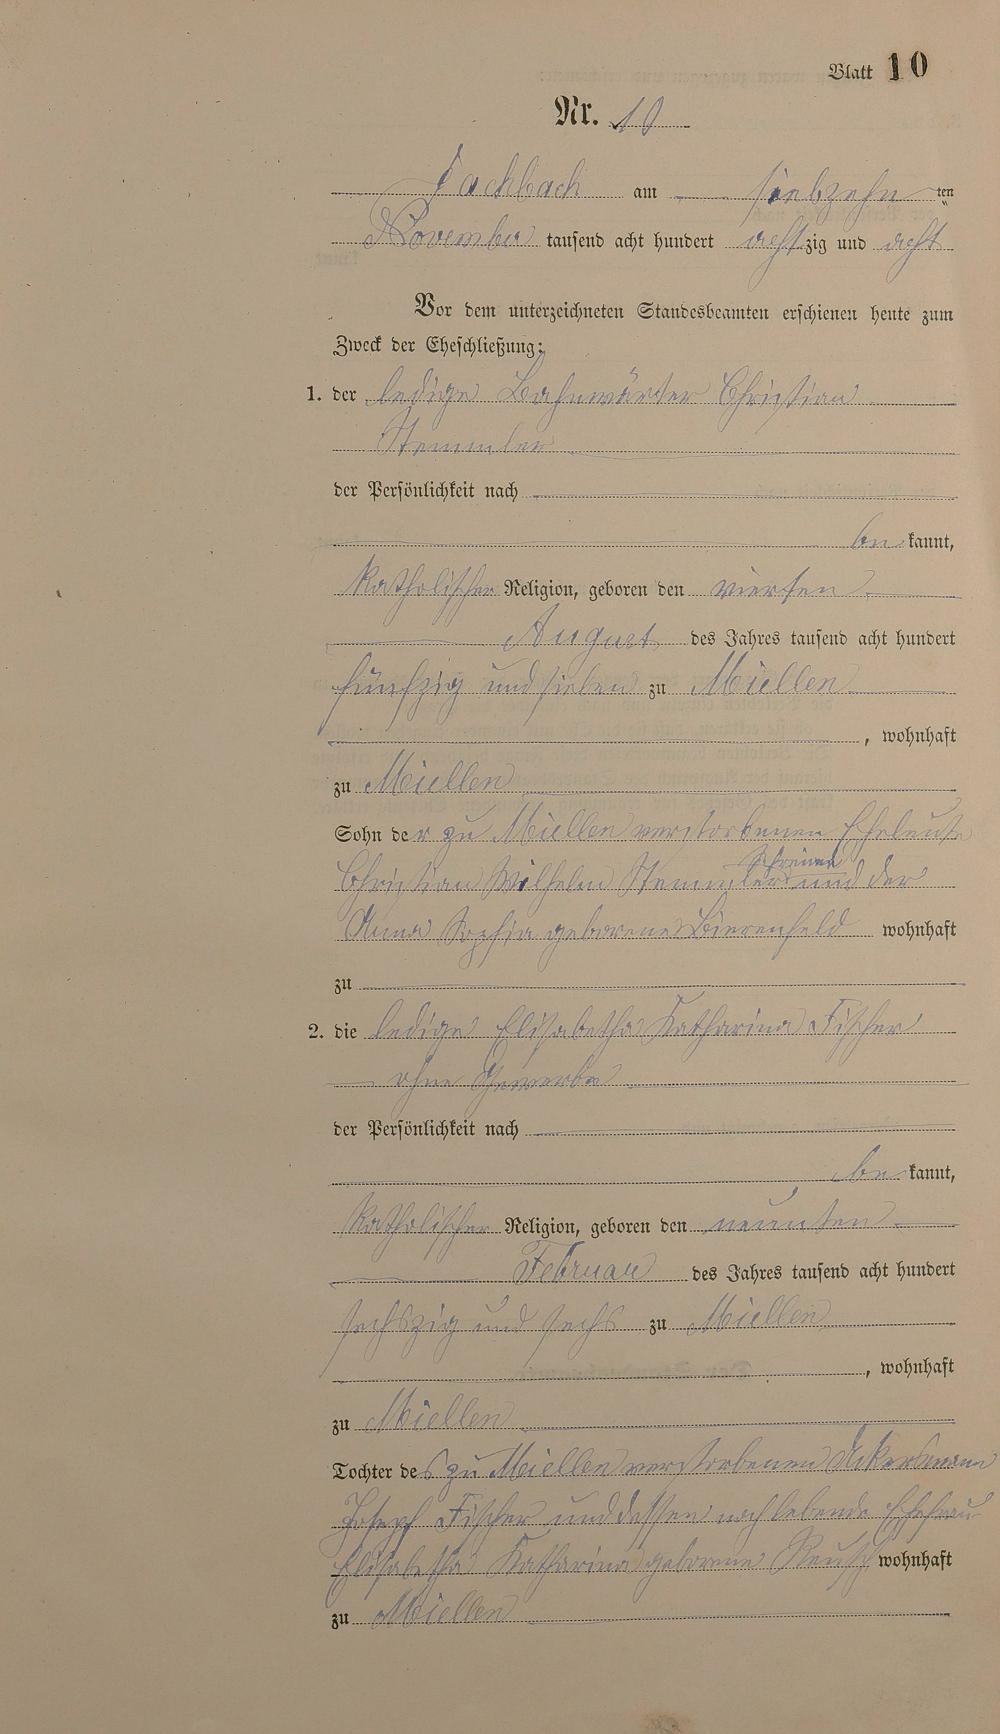 Blatt 10
Nr. 10
Fachbach am siebzehn ten
November tausend acht hundert achtzig und acht
Vor dem unterzeichneten Standesbeamten erschienen heute zum
Zweck der Eheschließung:
1. der ledige Bahnwärter Christian
Stemmler
der Persönlichkeit nach
be kannt,
katholischer Religion, geboren den vierten
August des Jahres tausend acht hundert
fünfzig und sieben zu Miellen
, wohnhaft
zu Miellen
Sohn der zu Miellen verstorbenen Eheleute
Schreiner
Christian Wilhelm Stemmler und der
Anna Sophia geborene Bierenfeld wohnhaft
zu
2. die ledige Elisabetha Katharina Fischer
ohne Gewerbe
der Persönlichkeit nach
be kannt,
katholischer Religion, geboren den neunten
Februar des Jahres tausend acht hundert
sechszig und sechs zu Miellen
, wohnhaft
zu Miellen
Tochter des zu Miellen verstorbenen Ackersmann
Joseph Fischer und dessen noch lebende Ehefrau
Elisabetha Katharina geborene Reusch wohnhaft
zu Miellen